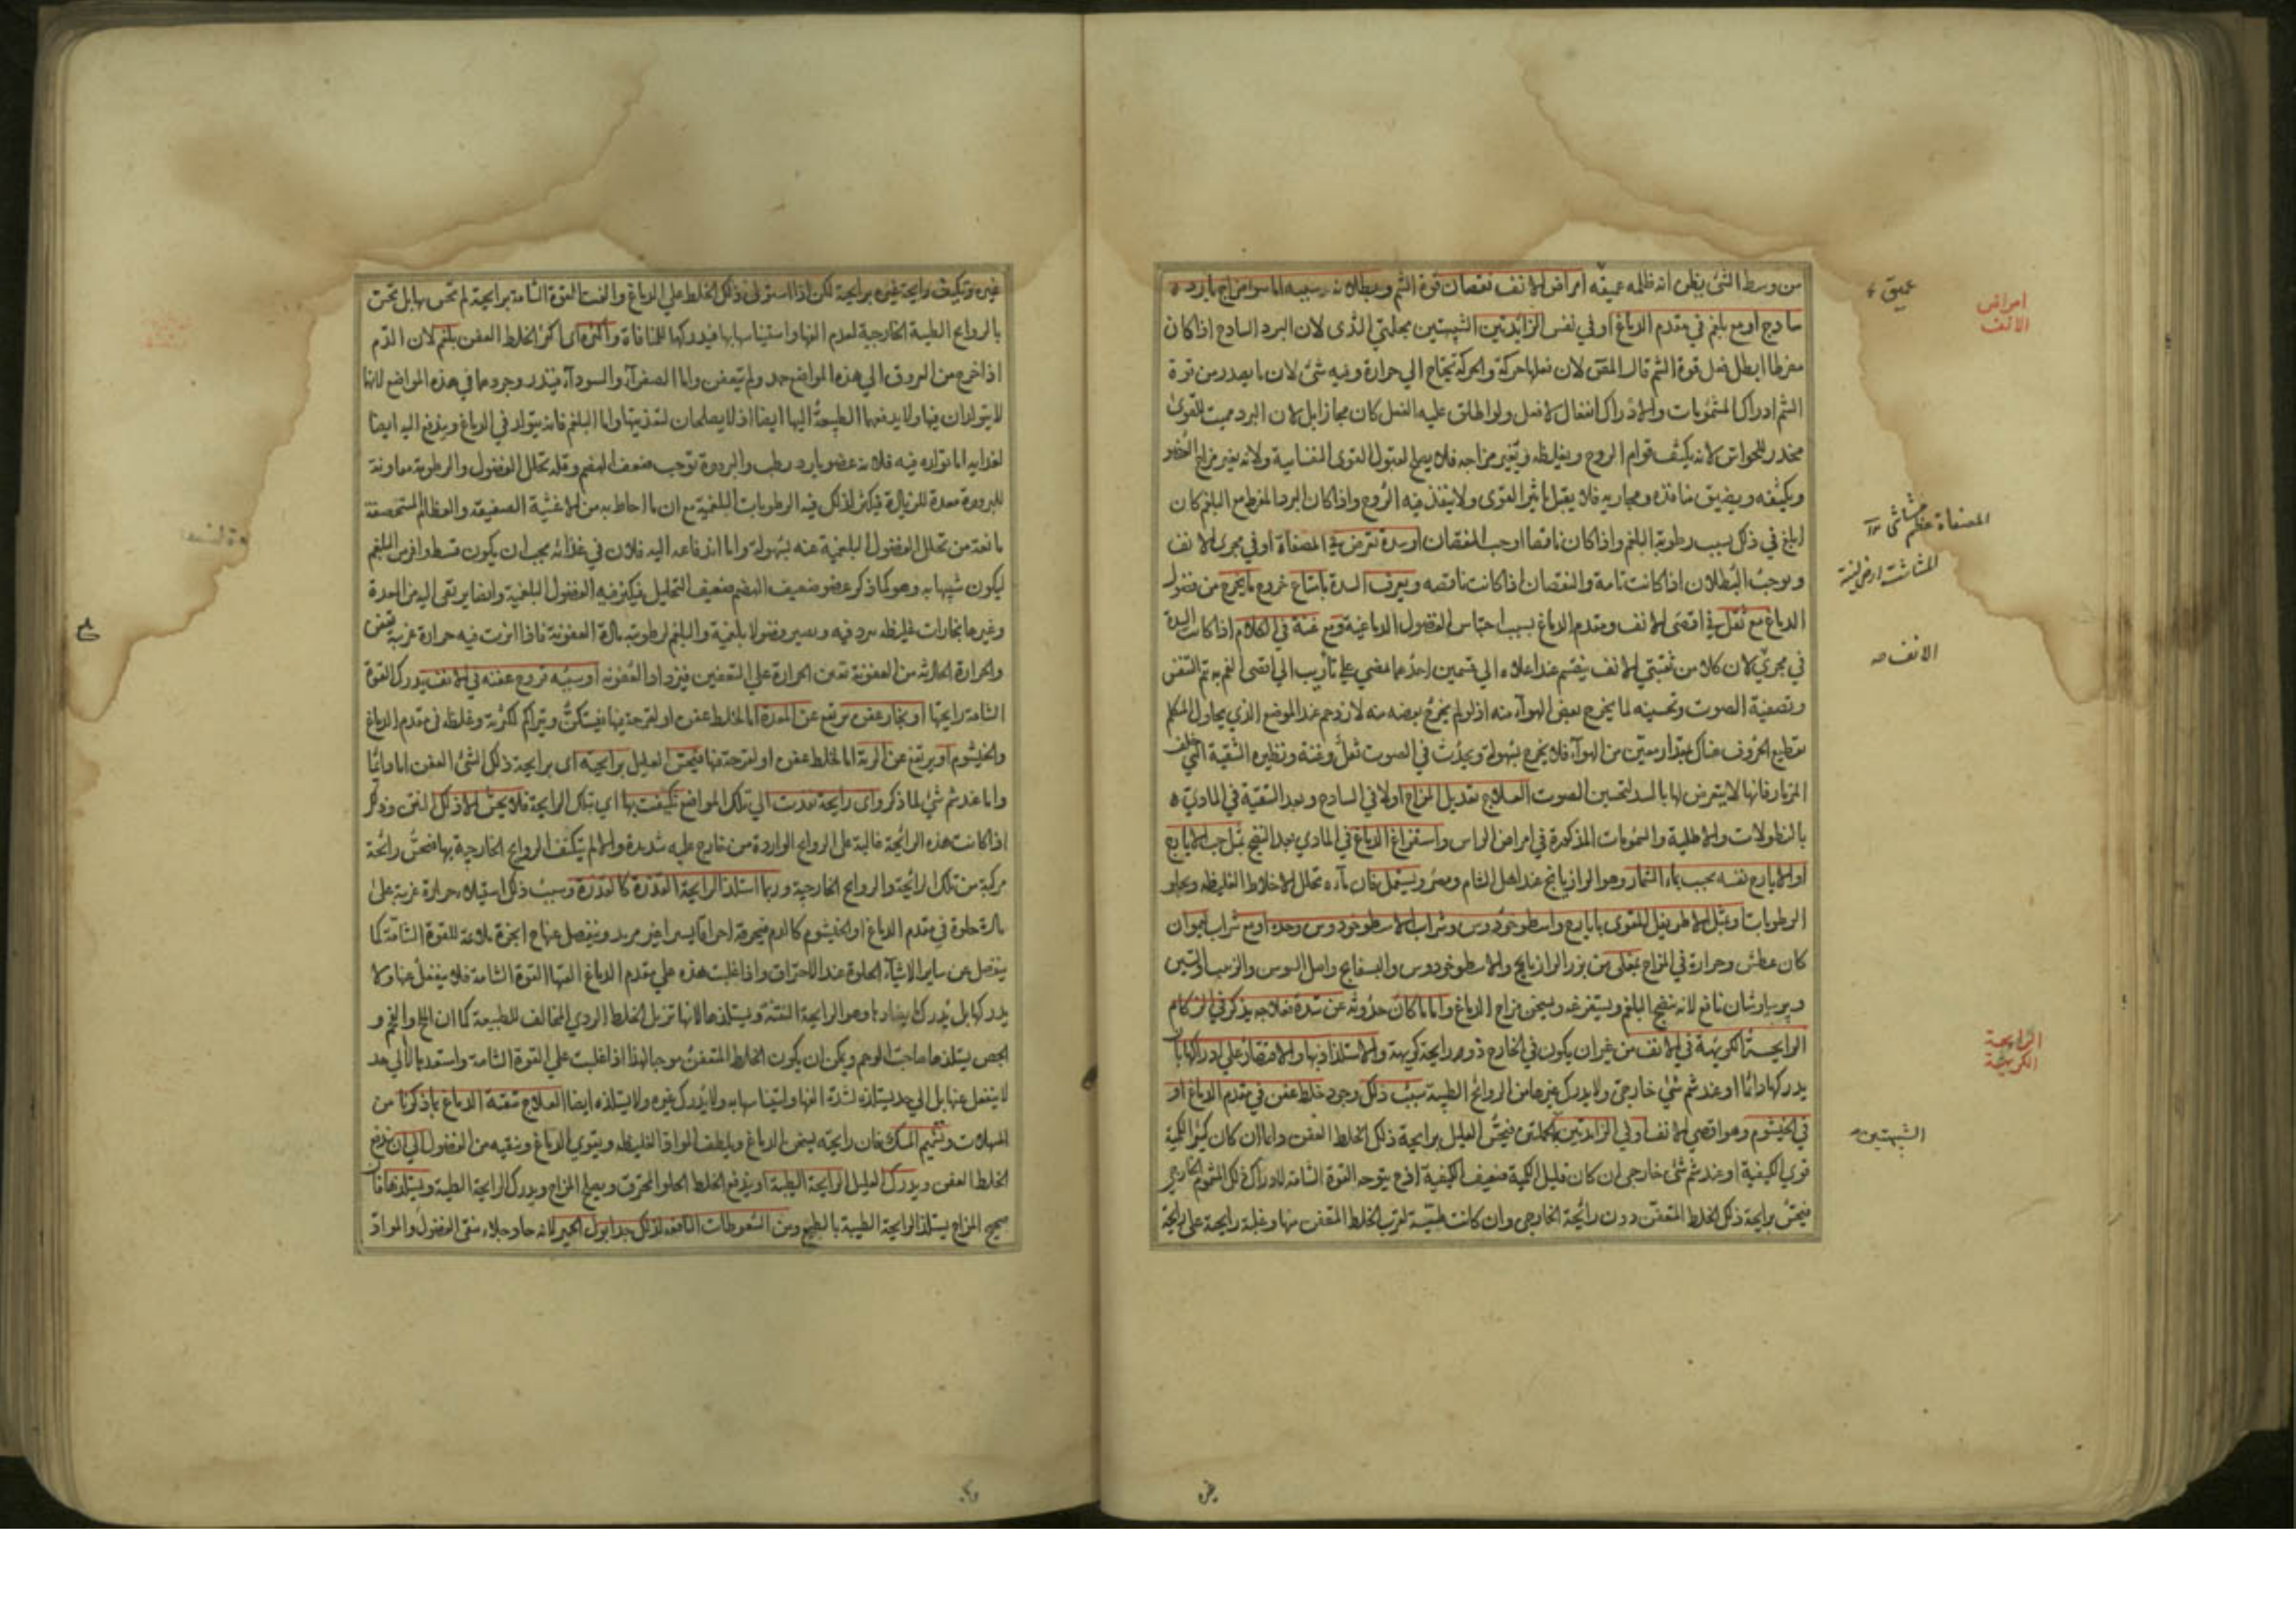 من وسط الشئ يظن انه ظلمه عميقه امراض الانف نقصان قوة الشم وبطلانه سببه اما سوء مزاج بارد
ساذج او مع بلغم في مقدم الدماغ او في نفس الزائدتين الشبيهتين بحلمتي الثدى لان البرد الساذج اذا كان
مفرطا ابطل فعل قوة الشم قال لان فعلها حركة والحركة تحتاج الي حرارة وفيه شئ لان ما يصدر من قوة
الشم ادراك المشمومات والادراك انفعال لا فعل ولو اطلق عليه الفعل كان مجازا بل لان البرد مميت للقوى
مخدر للحواس لانه يكثف قوام الروح ويغلظه ويغير مزاجه فلا يصلح لقبول القوى النفسانية ولانه يغير مزاج العضو
ويكثفه ويضيق منافذه ومجاريه فلا يقبل تاثير القوى ولا ينفذ فيه الروح واذا كان البرد المفرط مع البلغم كان
ابلغ في ذلك بسبب رطوبة البلغم واذا كان ناقصا اوجب النقصان او سدة تعرض في المصفاة او في مجرى الانف
ويوجب البطلان اذا كانت تامة والنقصان اذا كانت ناقصه ويعرف السدة بامتناع خروج ما يخرج من فضول
الدماغ مع ثقل في اقصى الانف ومقدم الدماغ بسبب احتباس الفضول الدماغية ومع غنة في الكلام اذا كانت السدة
في مجرى لان كلا من ثقبتي الانف ينقسم عند اعلاه الي قسمين احدهما يمضي على تاريب الي اقصى الفم به تم التنفس
وتصفية الصوت وتحسينه لما يخرج بعض الهوآء منه اذ لو لم يخرج بعضه منه لازدحم عند الموضع الذي يحاول المتكلم
تقطيع الحروف هناك بمقدار معين من الهوآء فلا يخرج بسهولة ويحدث في الصوت ثقل وغنة ونظيره الثقبة التي خلف
المزمار فانها لا يتعرض لها بالسد لتحسين الصوت العلاج تعديل المزاج اولا في الساذج وبعد التنقية في المادي
بالنطولات والاطلية والشمومات المذكورة في امراض الراس واستفراغ الدماغ في المادي بعد النضج بمثل حب الايارج
او الايارج نفسه بحسب بماء الشمار وهو الرازيانج عند اهل الشام ومصر ويستعمل فان مآءه تحلل الاخلاط الغليظه ويجلو
الرطوبات وبمثل الاطريفل المقوى بايارج واسطوخودوس وشراب الاسطوخودوس وحده او مع شراب ليمو ان
كان عطش وحرارة في المزاج بمغلى من بزر الرازيانج والاسطوخودوس والبسفايج واصل السوس والزبيب والتين
وبرسياوشان نافع لانه ينضج البلغم ويستفرغه ويسخن مزاج الدماغ واما ما كان حدوثه عن سدة فعلاجه يذكر في الزكام
الرايحة الكريهة في الانف من غير ان يكون في الخارج ذو رايحة كريهة والاستلذاذ بها والاقتصار على ادراكها بان
يدركها دائما او عند شم شئ خارجي ولا يدرك غيرها من الروائح الطيبة سبب ذلك وجود خلط عفن في مقدم الدماغ او
في الخيشوم وهو اقصي الانف او في الزائدتين فيحس العليل برايحة ذلك الخلط العفن دائما ان كان كثير الكمية
قوي الكيفية او عند شم شئ خارجي ان كان قليل الكمية ضعيف الكيفية اذ ح يتوجه القوة الشامة لادراك ذلك المشموم الخارجي
فيحس برايحة ذلك الخلط المتعفن دون رائحة الخارجي وان كانت طيبة لقرب الخلط المتعفن منها وغلبة رايحته على رايحة
عميق
امراض
الانف
المصفاة عظم مشاشي
الانف
الرايحة
الكريهة
الشبيهتين
غيره وتكيف رايحة غيره برايحته لكن اذا استولى ذلك الخلط علي الدماغ والفت القوة الشامة برايحته لم تحس بها بل تحس
بالروايح الطيبة الخارجية لعدم الفها واستيناسها بها فيدركها للمنافاة واكثره اى اكثر الخلط العفن بلغم لان الدم
اذا خرج من العروق الي هذه المواضع جمد ولم يتعفن واما الصفرآء والسودآء فيندر وجودهما في هذه المواضع لانهما
لا يتولدان فيها ولا يدفعهما الطبيعة اليها ايضا اذ لا يصلحان لتغذيتها واما البلغم فانه يتولد في الدماغ ويندفع اليه ايضا
لغذايه اما تولده فيه فلانه عضو بارد رطب والبرودة توجب ضعف الهضم وقلة تحلل الفضول والرطوبة معاونة
للبرودة معدة للزيادة فيكثر لذلك فيه الرطوبات البلغمية مع ان ما احاط به من الاغشية الصفيقة والعظام المستحصفة
مانعة من تحلل الفضول البلغمية عنه بسهولة واما اندفاعه اليه فلان في غذائه يجب ان يكون قسط وافر من البلغم
ليكون شبيها به وهو كما ذكر عضو ضعيف الهضم ضعيف التحليل فيكثر فيه الفضول البلغمية وايضا يرتقى اليه من المعدة
وغيرها بخارات غليظه يبرد فيه ويصير فضولا بلغمية والبلغم لرطوبته مادة العفونة فاذا اثرت فيه حرارة غريبة تعفن
والحرارة الحادثة من العفونة تعين الحرارة علي التعفين فيزداد العفونة او سببه قروح عفنه في الانف يدرك القوة
الشامة رايحتها او بخار عفن يرتفع عن المعدة اما لخلط عفن او لقرحة فيها فيستكن ويتراكم لكثرته وغلظه في مقدم الدماغ
والخيشوم او يرتفع عن الرية اما لخلط عفن او لقرحة فيها فيحس العليل برايحته اى برايحة ذلك الشئ العفن اما دائما
واما عند شم شئ لما ذكر واى رايحة نفذت الي تلك المواضع تكيفت بها اي بتلك الرايحة فلا يحس الا ذلك النتن وذلك
اذا كانت هذه الرائحة غالبة على الروايح الواردة من خارج عليه شديدة والا لم يتكيف الروايح الخارجية بها فتحس رائحة
مركبة من تلك الرائحة والروايح الخارجية وربما استلذ الرايحة القذرة كالعذرة وسبب ذلك استيلاء حرارة غريبة على
مادة حلوة في مقدم الدماغ او الخيشوم كالدم فيحرقه احراقا يسيرا غير مريد وينفصل عنها ح ابخرة ملائمة للقوة الشامة كما
ينفصل عن ساير الاشيآء الحلوة عند الاحتراق واذا غلبت هذه علي مقدم الدماغ الفتها القوة الشامة فلا ينفعل عنها ولا
يدركها بل يدرك ما يضادها وهو الرايحة المنتنة ويستلذها لانها تزيل الخلط الردي المخالف للطبيعة كما ان الملح والفحم و
الجص يستلذها صاحب الوحم ويمكن ان يكون الخلط المتعفن موجبا لهذا اذا غلبت علي القوة الشامة واستعدبها لا الي حد
لا ينفعل عنها بل الي حد يستلذه لشدة الفها واستيناسها به ولا يدرك غيره ولا يستلذه ايضا العلاج تنقية الدماغ بما ذكرنا من
المسهلات وتشميم المسك فان رايحته يسخن الدماغ ويلطف المواد الغليظه ويقوي الدماغ وينقيه من الفضول الي ان يندفع
الخلط العفن ويدرك العليل الرايحة الطيبة او يندفع الخلط الحلو المحترق ويصلح المزاج ويدرك الرايحة الطيبة ويستلذها فان
صحيح المزاج يستلذ الرايحة الطيبة بالطبع ومن السعوطات النافعه لذلك جدا بول الحمير لانه حاد جلاء ينقى الفضول والمواد